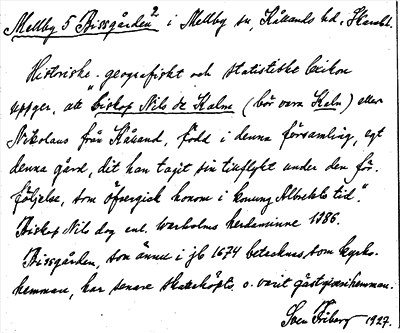 Mellby 5 Bissgården² i Mellby sn, Kållands hd, Skarabl.
Historiskt-geografiskt och statistiskt lexikon
uppger, att "biskop Nils de Kalne (bör vara Keln) eller
Nikolaus från Kålland, född i denna församling, egt
denna gård, dit han tagit sin tillflykt under den för-
följelse, som öfvergick honom i konung Albrekts tid".
Biskop Nils dog enl. Warholms herdaminne 1386.
Bissgården, som ännu i jb 1674 betecknas som kyrko-
hemman, har senare skatteköpts o. varit gästgivarehemman.
Sven Friberg 1927.